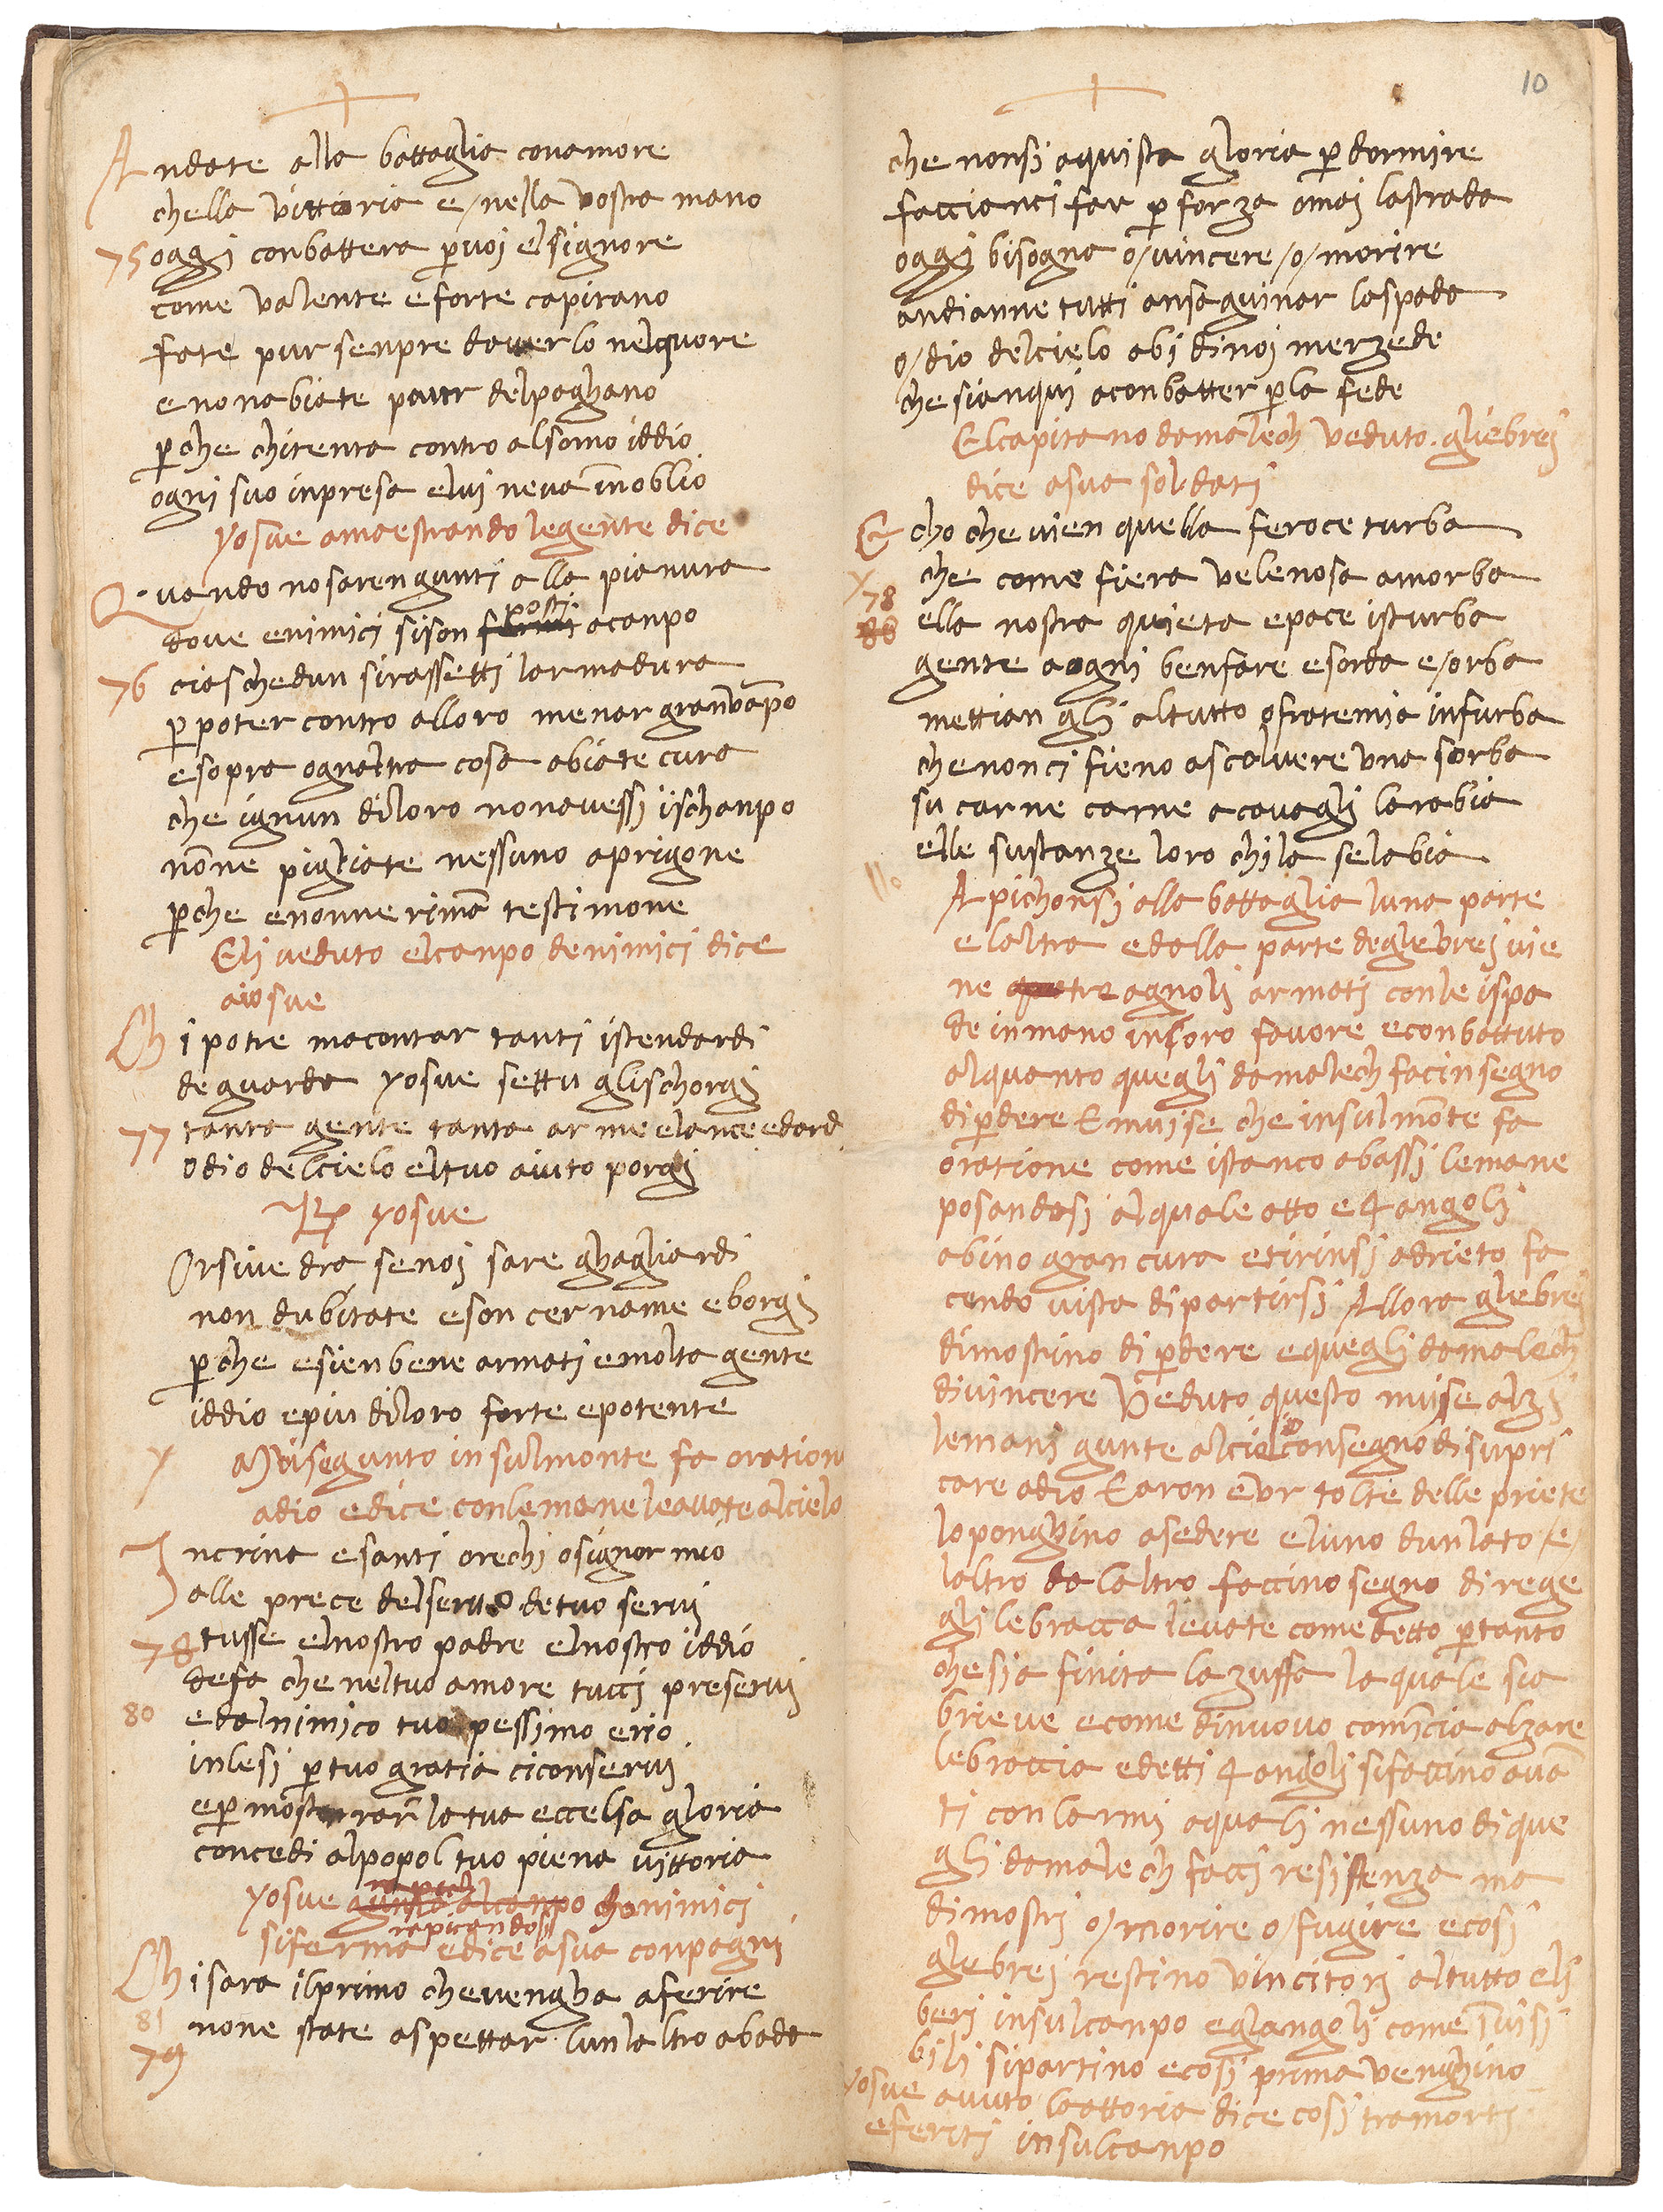 Andate alla battaglia con amore
chella vittioria e/nella vostra mano
75 oggi conbattera p voi elsignore
come valente e forte capitano
fate pur senpre daverlo nelquore
e nonabiate paur delpaghano
p che chitenta contro alsomo iddio
ogni suo inpresa elui neva inoblio
yosue amaestrando legente dice
Quando nosaren gunti alla pianura
posti
dove enimici sison acanpo
76 ciaschedun sirassetti larmadura
p poter contro alloro menar granvāpo
esopra ognaltra cosa abiate cura
che ignun diloro nonavessi ischanpo
nōne pigliate nessuno aprigone
p che enonne rimā testimone
Eli veduto elcanpo denimici dice
aiosue
Chi potre macontar tanti istendardi
deguarda yosue settu glischorgi
77 tanta gente tanta arme elance edard
odio delcielo eltuo aiuto porgi
R yosue
Orsive dra senoi sare ghagliardi
non dubitate eson cername eborgi
p che esienbene armati emolta gente
iddio epiu diloro forte epotente
y Moisegunto insulmonte fa oration
adio edice conlemane levate alcielo
Incrina esanti orechi osignor mio
alle prece delservo detuo servi
78 tusse elnostro padre elnostro iddio
defa che neltuo amore tucci preservi
80 edalnimico tuo pessimo errio
inlesi p tuo gratia ciconservi
ep mostrar latua eccelsa gloria
concedi alpopol tuo piena vittoria
yosue denimici
rapicandosi
siferma edice asua conpagni
Chi sara ilprimo chevengha aferire
81 none state aspettar lunlaltro abada
79
10
che nonsi aquista gloria p dormire
faccianci far p forza omai lastrada
oggi bisogna o/vincere/o/morire
andianne tutti ansaguinar laspada
o/dio delcielo abi dinoi merzede
che sianqui aconbatter p la fede
Elcapitano damalech veduto gliebrei
dice asua soldati
Echo che vien quella feroce turba
78 che come fiera velenosa amorba
ella nostra quieta epace isturba
gente aogni benfare esorda e/orba
mettian gli altutto ofratemia infurba
che nonci fieno ascalvere una sorba
su carne carne acavagli larabia
elle sustanze loro chila selabia
Apichonsi alla battaglia luna parte
elaltra edalla parte degliebrei vie
ne agnoli armati conle ispa
de inmano inloro favore econbattuto
alquanto quegli damalech facin segno
dip dere Emuise che insulmōte fa
oratione come istanco abassi lemane
posandosi alquale atto e 4 angoli
abino gran cura etirinsi adrieto fa
cendo vista dipartirsi Allora glebrei
dimostino di p dere equegli damalech
divincere Veduto questo muise alzi
lemani gunte alcielo consegno di supri
care adio Earon eur tolte delle priete
loponghino asedere eluno dunlato/e/
laltro dalaltro faccino segno direge
gli lebracca levate come detto p tanto
che sia finita lazuffa laquale sia
brieve ecome dinuovo comīcia alzare
lebraccia edetti 4 angoli sifaccino avā
ti con larmi aquali nessuno di que
gli damalech facci resistenza ma
dimostri o/morire o/fugire ecosi
glebrei restino vincitori altutto eli
beri insulcanpo eglangoli come īvisi
bili sipartino ecosi prima venghino
yosue avuto lavttoria dice cosi tramorti
eferiti insulcanpo